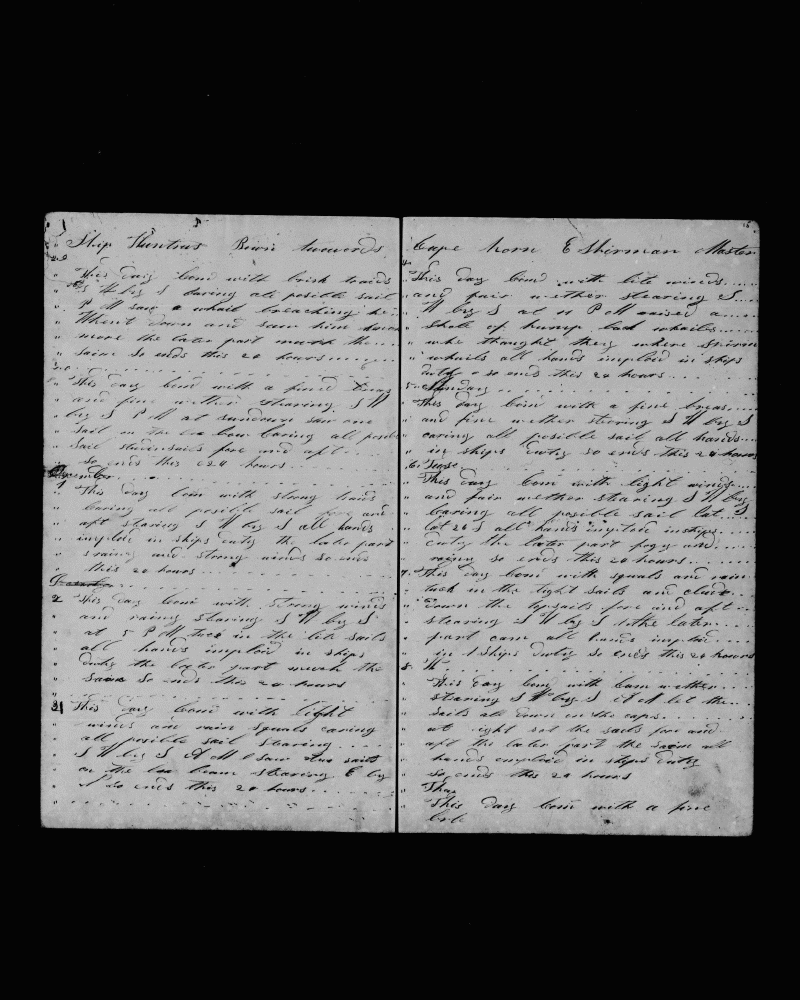 Ship Huntress Bown towords
This day bem with brisk winds
S W by S caring all posible sail
P M saw a whail breaching he
Whent down and saw him
more the later part mutch the
same So ends this 24 hours
This day bem with a fine
and fine wether staring S W
by S P M at sundown saw one
sail on the lea bow caring all posible
Sail studensails fore and aft
so ends this 24 hours
December
1 This day bem with strong winds
caring all posible sail fore and
aft staring S W by S all hands
imploid in ships duty the later part
raing and strong winds so ends
this 24 hours
2 This day bem with strong winds
and raing staring S W by S
at 5 P M tuck in the lite sails
all hands imploid in ships
duty the later part mutch the
same So ends this 24 hours
3 This day bem with light
winds and rain squals caring
all posible sail staring
S W by S A M saw two sails
on the lea beam staring E by
N so ends this 24 hours
Cape horn E Shirman Master
This day bem with lite winds
and fair wether stearing S
W by S at 11 P M raised a
shole of hump back whailes
who thought they where Spirm
whails all hands imploid in ships
duty so ends this 24 hours
5 Munday
This day bem with a fine breas
and fine wether stering S W by S
caring all posible sail all hands
in ships duty so ends this 24 hours
6
This day bem with light winds
and fair wether staring S W by
caring all posible sail lat S
all hands imploid in ships
duty the later part fogy and
raing so ends this 24 hours
7 This day bem with squals and rain
tuck in the light sails and clued
down the topsails fore and aft
stearing S W by S the later
part cam all hands imploid
in ships duty so ends this 24 hours
8 W
This day bem with cam wether
staring S W by S at M let the
sails all down on the caps
at ight set the sails fore and
aft the later part the same all
hands emploid in ships duty
so ends this 24 hours
Thur
This day bem with a fine